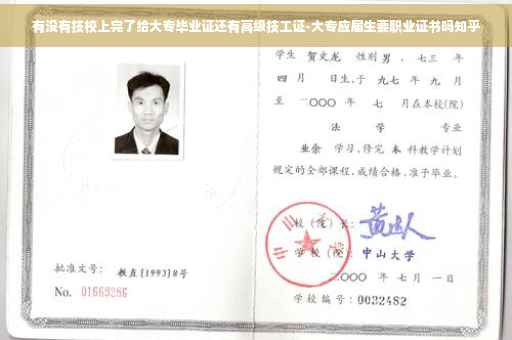 有没有技校上完了给大专毕业证还有高级技工证-大专应届生要职业证书吗知乎
学生 贺文龙 性别 男 ，七三 年
四 月 日生，于 九七 年 九 月
至 二〇〇〇 年 七 月在本校(院)
法 学 专业
业余 学习，修完 本 科教学计划
规定的全部课程，成绩合格，准予毕业。
校（院）长：
学 校（院）：中山大学
批准文号：教直[1993]8号
二〇〇〇 年 七 月 一 日
No. 01663286
学校编号：0032482